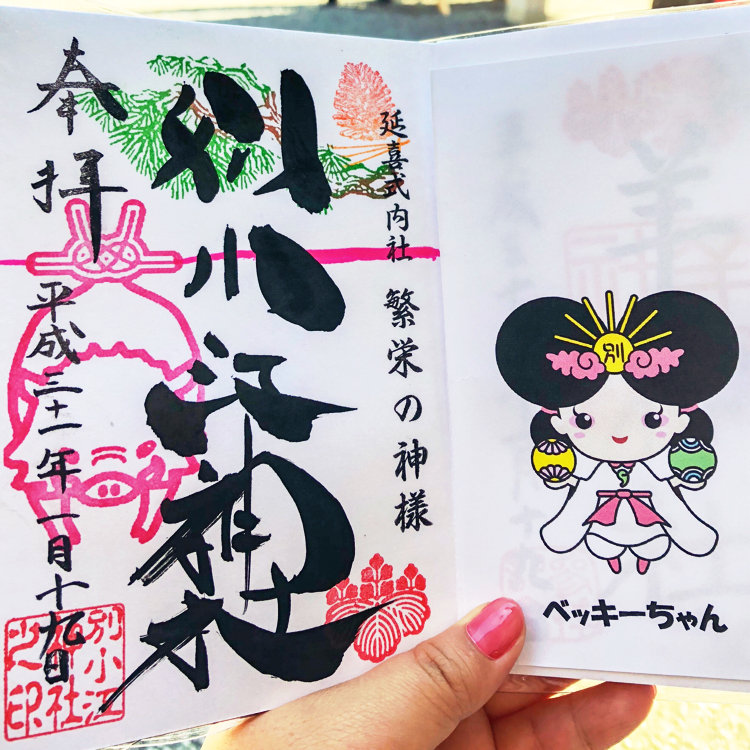 延喜式内社 繁栄の神様
別小江神社
奉拝
平成三十一年一月十九日
別小江
神社
之印
別
ベッキーちゃん